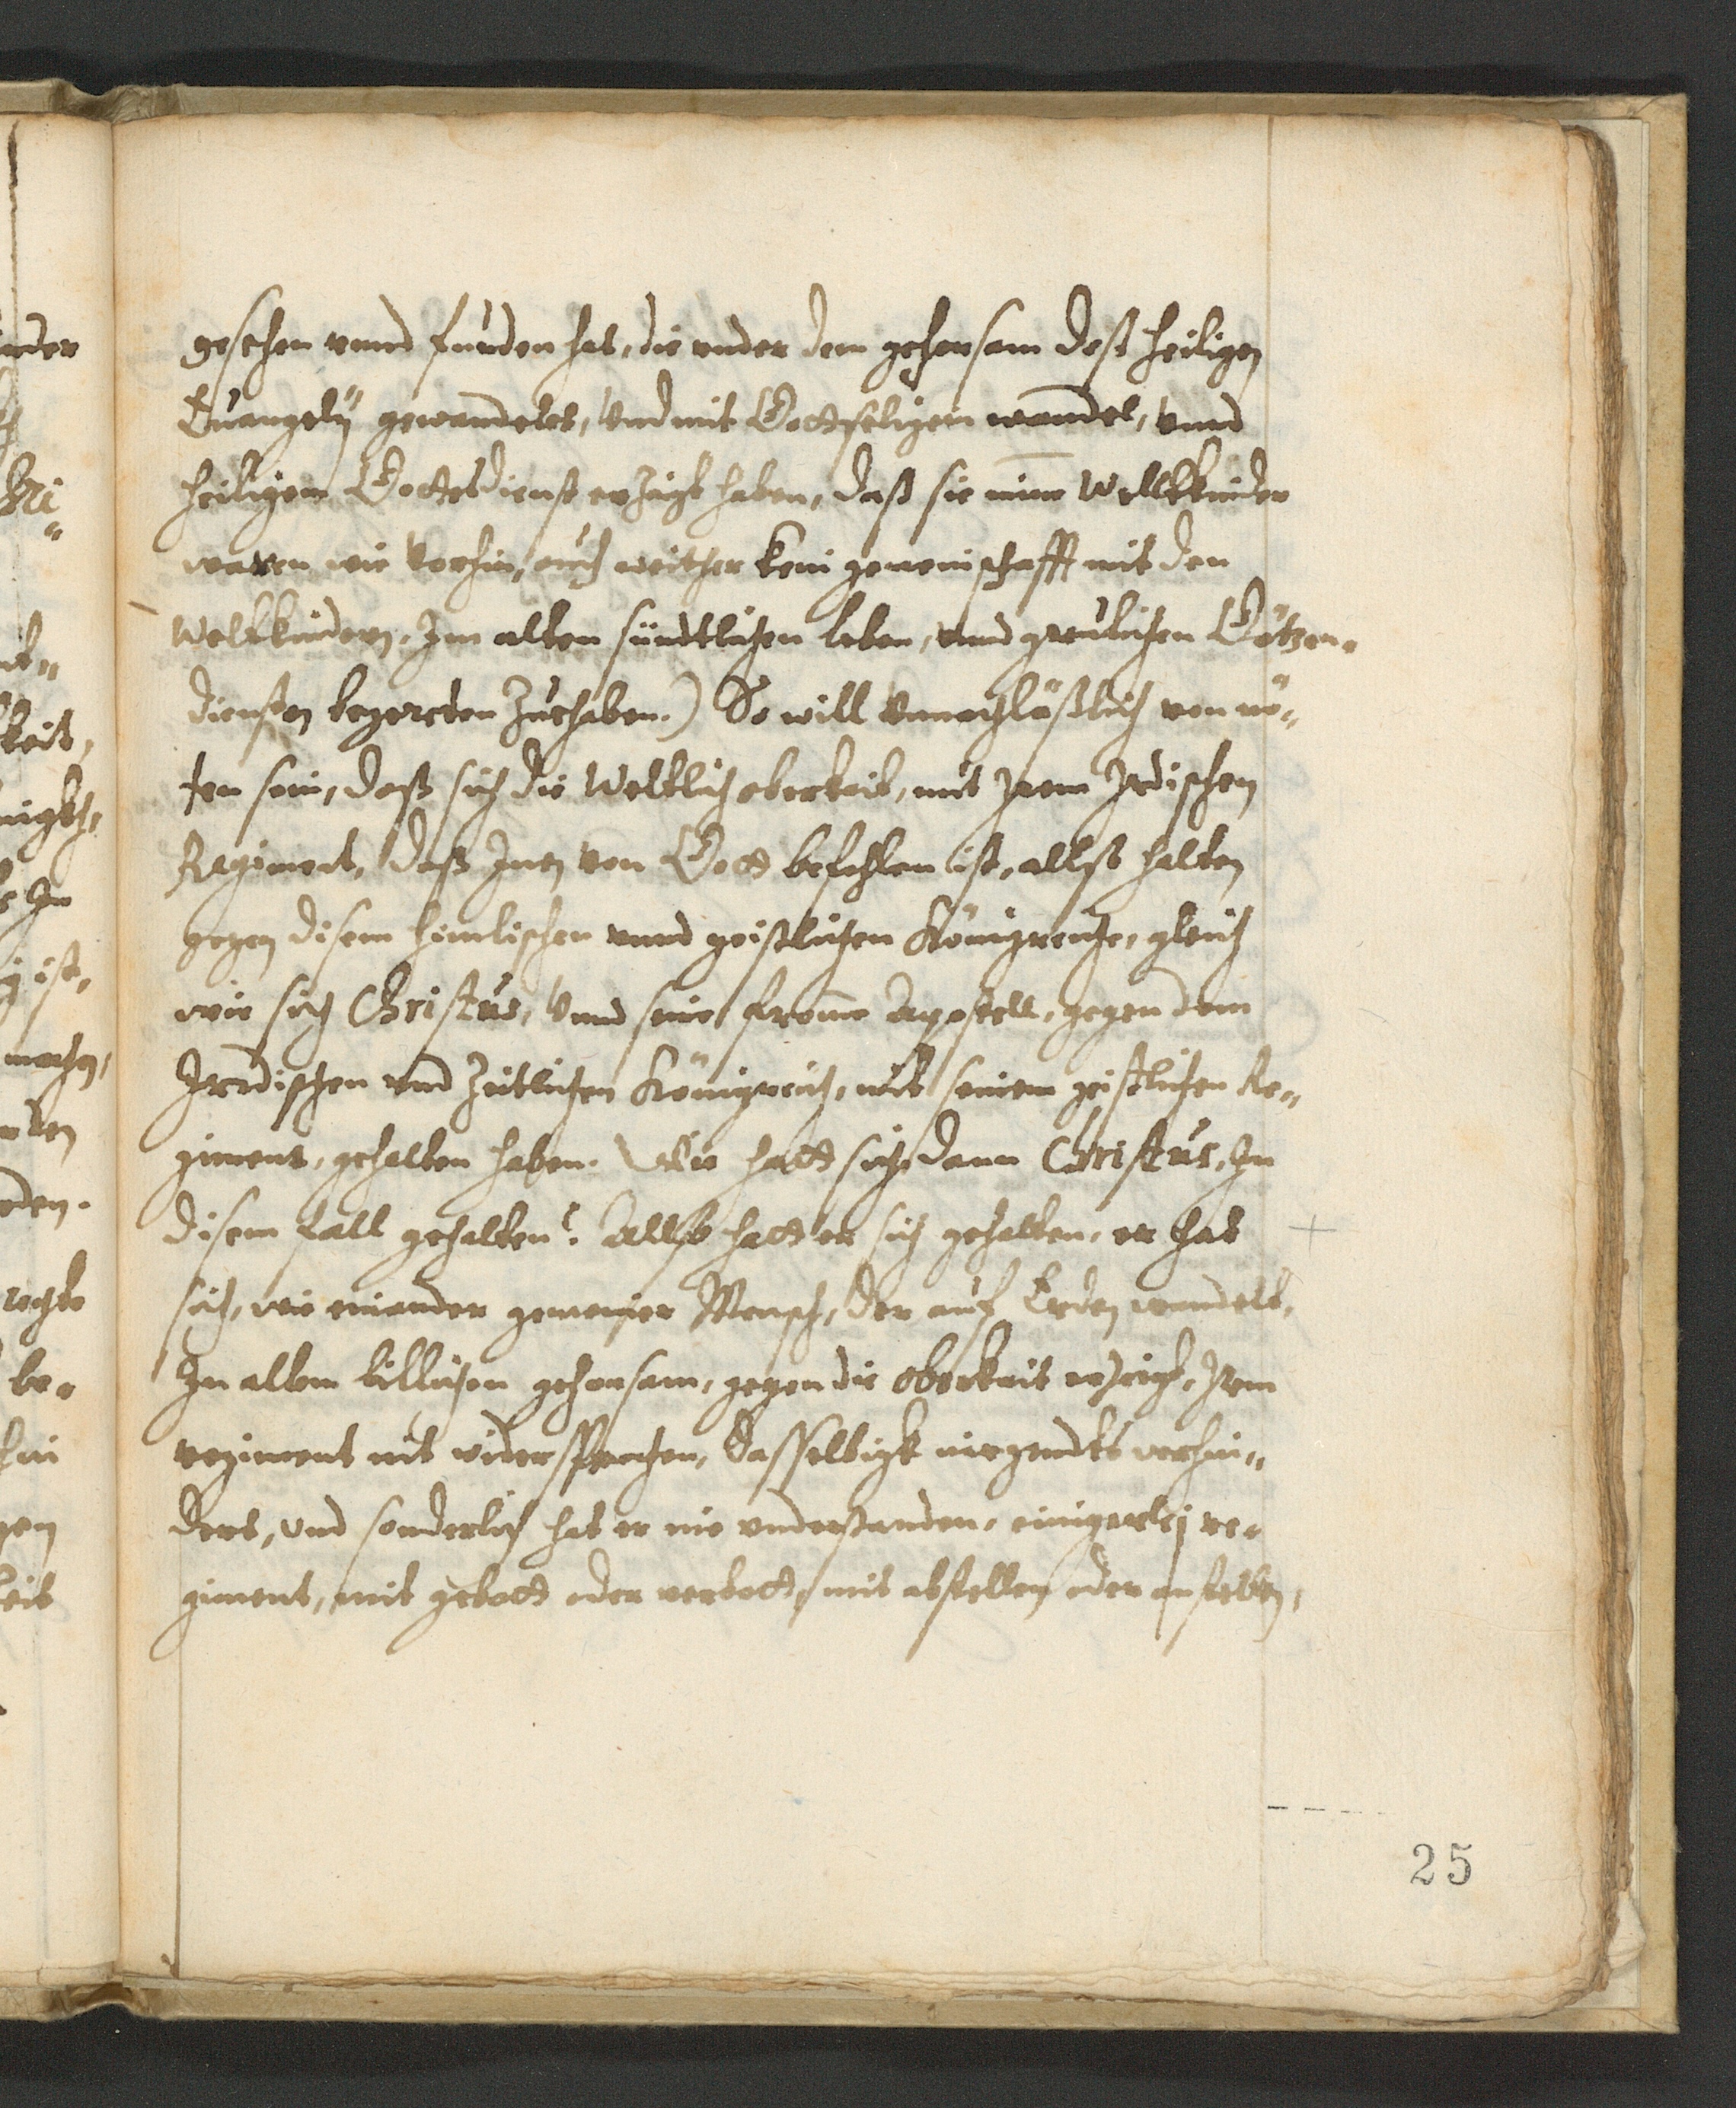 gesehen vnnd funden hat, die vnder dem gehorsam deß heiligen
Euangelÿ gewandelet, vnd mit Gottseligem wandel, vnnd
heiligem Gottesdienst erzaigt haben, daß sie nime Weltkinder
waren wie vorhin, auch weither kein gemeinschafft mit den
Weltkindern, Im alten sündtlichen leben, vnnd greulichen Götzen-
diensten begereten zuhaben.) So will vnnachläßlich von nö-
ten sein, daß sich die Weltlich oberkeit, mit Irem Irdischen
Regiment, daß Inen von Gott befohlen ist, allso halten
gegen disem himlischen vnnd geistlichen Königreiche, gleich
wie sich Christus, vnnd seine frome Apostell, gegen dem
Irrdischen vnd Zeitlichen Königreich, mit seinem geistlichen Re-
giment, gehalten haben. Wie hatt sich dann Christus, In
disem fall gehalten? Allso hatt er sich gehalten, er hat
sich, wie ein ander gemeiner Mensch, der auf Erden wandelt,
In allem billichen gehorsam, gegen die oberkeit erzeigt, Irem
regiment nit widersprochen, Dasselbigk nirgendts verhin-
dert, vnd sonderlich hat er nie vnderstanden, einigerleÿ re-
giment, mit gebott oder verbott, mit abstellen oder anstellen,
25